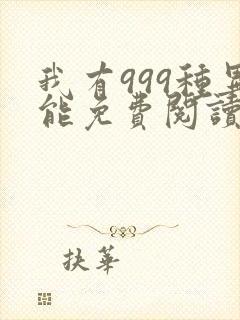 我有999種異
能免費閱讀
扶華